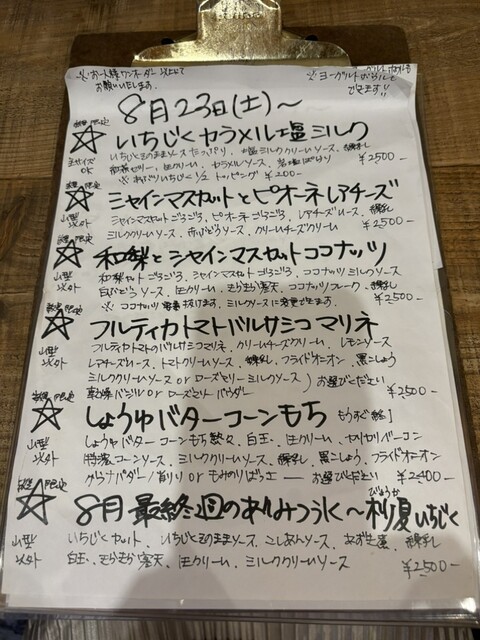 ※お一人様ワンオーダー以上にて
お願いいたします。
※ヨーグルトがけも
できます!!
8月23日(土)～
数量限定
いちじくキャラメル塩ミルク
全サイズOK
いちじくそのままソースたっぷり、塩ミルククリームソース、練乳
生クリーム、キャラメルソース、岩塩
¥2500-
※ いちじく1/2 トッピング ¥200-
数量限定
シャインマスカットとピオーネレアチーズ
山型以外
シャインマスカットごろごろ、ピオーネごろごろ、レアチーズソース、練乳
ミルククリームソース、赤ぶどうソース、クリームチーズクリーム
¥2500-
数量限定
和梨とシャインマスカットココナッツ
山型以外
和梨カットごろごろ、シャインマスカットごろごろ、ココナッツミルクソース
白ぶどうソース、生クリーム、きらきら寒天、ココナッツフレーク、練乳
※ ココナッツ 抜けます。ミルクソースに変更できます。
¥2500-
数量限定
フルティカトマトバルサミコマリネ
山型以外
フルティカトマトのバルサミコマリネ、クリームチーズクリーム、レモンソース
レアチーズソース、トマトクリームソース、練乳、フライドオニオン、黒こしょう
ミルククリームソース or ローズマリーミルクソース
お選びください
乾燥バジル or ローズマリーパウダー
¥2500-
数量限定
しょうゆバターコーンもち もうすぐ終了
山型以外
しょうゆバターコーンもち、白玉、生クリーム、カリカリベーコン
特濃コーンソース、ミルククリームソース、練乳、黒こしょう、フライドオニオン
お選びください
¥2400-
数量限定
8月最終週のあんみつ氷～秒夏いちじく
びょうか
山型以外
いちじくカット、いちじくそのままソース、こしあんソース、あずき、練乳
白玉、きらきら寒天、生クリーム、ミルククリームソース
¥2500-